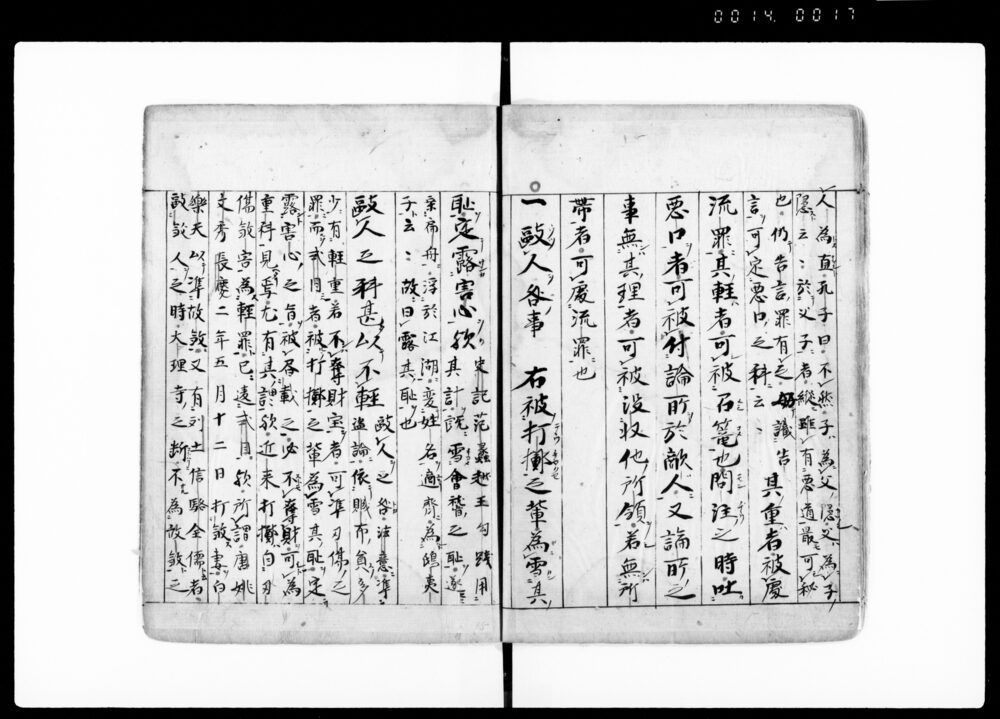 0014. 0017
人為直孔子曰不然子為父隱父為子
隱云〻於父子者縦雖有悪道最可秘
也仍告言罪有之 誣告
言可定悪口之科云〻 其重者被處
流罪其輕者可被召籠也問注之時吐
悪口者可被付論所於敵人又論所之
事無其理者可被没収他所領若無所
帯者可處流罪也
一 毆人咎事 右被打擲之輩為雪其
恥定露害心歟 史記范蠡越王勾践用
其計既雪會稽之恥遂
乗扁舟浮於江湖変姓名適齊為鴟夷
子云〻故曰露其恥也
毆人之科甚以不輕 毆人之咎法意準
盗論依賊布貧多
少有輕重若不奪財宝者可準刃傷之
罪而式目者被打擲之輩為雪其恥定
露害心之旨被召載之必不奪財可為
重科見焉尤有其謂歟近来打擲自刃
傷殺害為輕罪已違式目歟所謂唐姚
文秀長慶二年五月十二日打殺妻白
樂天以準故殺又有列士信駱全儒者
毆殺人之時大理寺之断不為故殺之